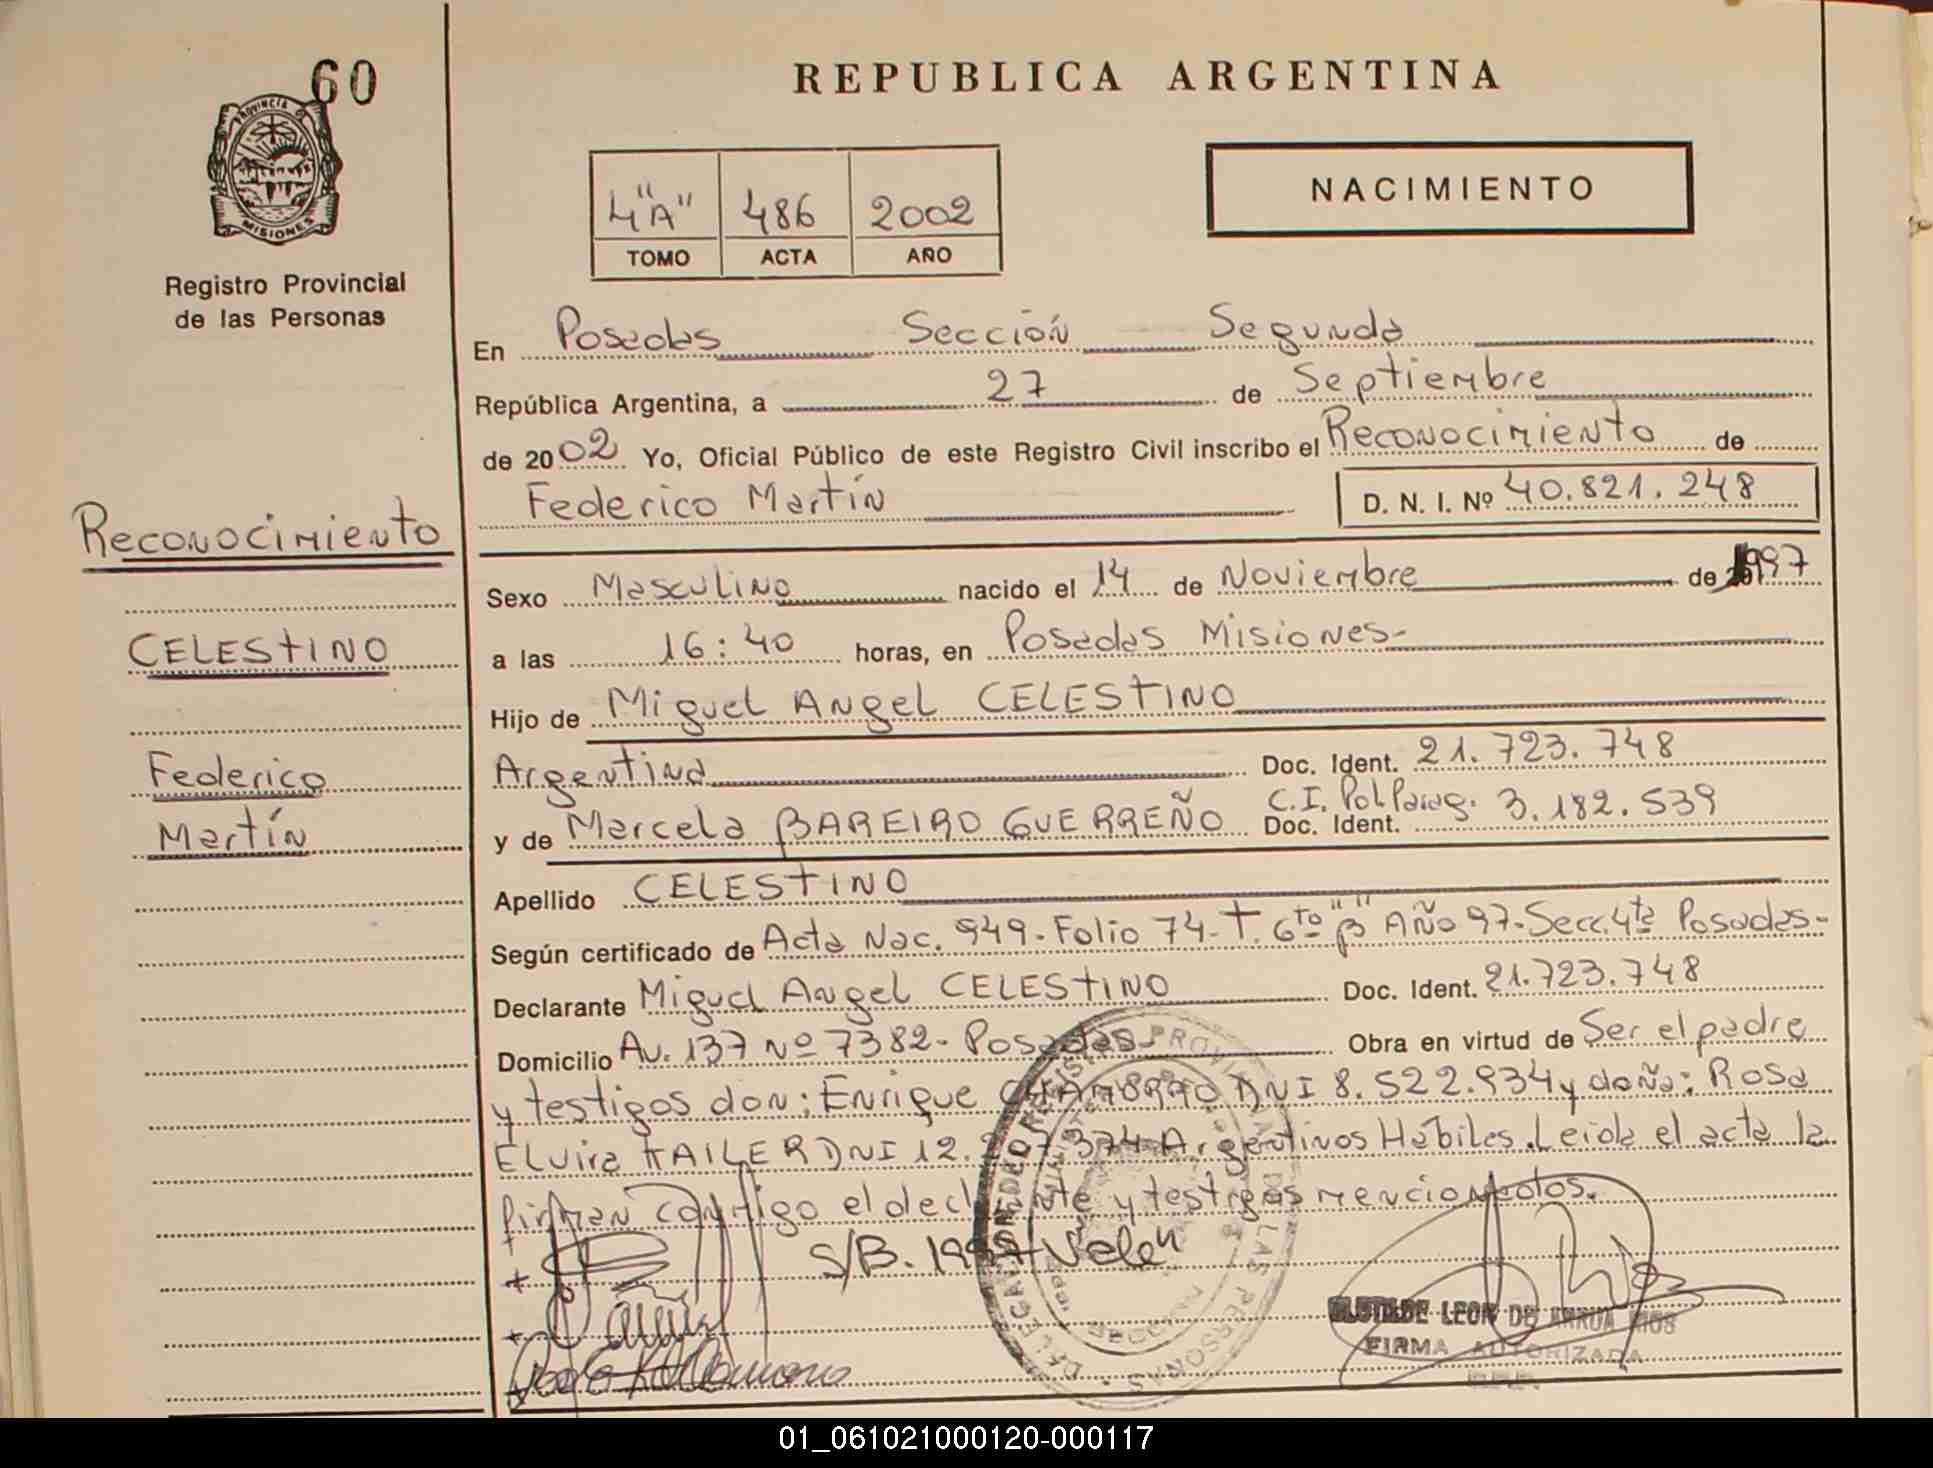 60
PROVINCIA DE
MISIONES
Registro Provincial
de las Personas
REPUBLICA ARGENTINA
4"A" 486 2002
TOMO ACTA AÑO
NACIMIENTO
En Posadas Sección Segunda
República Argentina, a 27 de Septiembre
de 2002 Yo, Oficial Público de este Registro Civil inscribo el Reconocimiento de
Federico Martín D. N. I. Nº 40.821.248
Reconocimiento
CELESTINO
Federico
Martín
Sexo Masculino nacido el 14 de Noviembre de 1997
a las 16:40 horas, en Posadas Misiones-
Hijo de Miguel Angel CELESTINO
Argentina Doc. Ident. 21.723.748
y de Marcela BAREIRO GUERREÑO Doc. Ident. C.I. Pol Parag. 3.182.539
Apellido CELESTINO
Según certificado de Acta Nac. 949-Folio 74-T. 6to "B" Año 97-Secc. 4ta Posadas-
Declarante Miguel Angel CELESTINO Doc. Ident. 21.723.748
Domicilio Av. 137 Nº 7382- Posadas- Obra en virtud de Ser el padre
y testigos don: Enrique CHAMORRO DNI 8.522.934 y doña: Rosa
Elvira HAILER DNI 12. 374 Argentinos Hábiles. Leida el acta la
firman conmigo el declarante y testigos mencionados.
S/B. 1997 Vale"
LEON DE ARRUA RIOS
FIRMA AUTORIZADA
R.P.P.
01_061021000120-000117